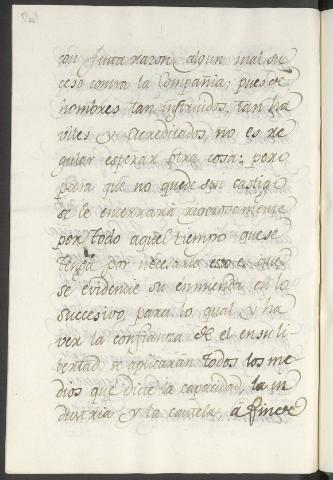 con justa razon, algun mal su
ceso contra la Compañia; pues de
hombres tan instruidos, tan ha
viles y acreditados, no es re
gular esperar otra cosa; pero
para que no quede sin castigo
se le encerrará rigorosamente
por todo aquel tiempo que se
tenga por necesario esto es que
se evidencie su enmienda en lo
succesivo para lo qual y ha
ver la confianza de el en su li
bertad, se aplicarán todos los me
dios que dicte la capacidad, la in
dustria y la cautela, á fin de